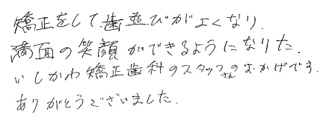 矯正をして歯並びがよくなり、
満面の笑顔ができるようになりた.
いしかわ矯正歯科のスタッフさんのおかげです.
ありがとうございました.